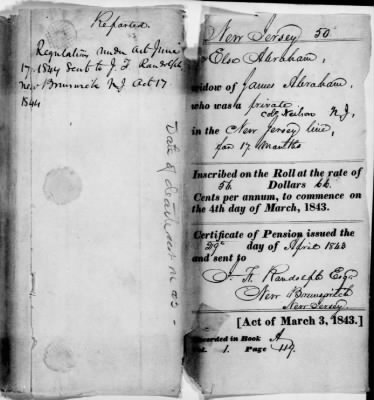 Reported
Regulation under Act June
17. 1844 sent to J F Randolph
New Brunswick N J Act 17
1844
Date of death not
New Jersey 50
Elsc Abraham,
widow of James Abraham,
who was a private
Col Neilson N J,
in the New Jersey line,
for 17 months
Inscribed on the Roll at the rate of
56 Dollars 66
Cents per annum, to commence on
the 4th day of March, 1843.
Certificate of Pension issued the
29 day of April 1843
and sent to
J. F. Randolph Esqr
New Brunswick
New Jersey
[Act of March 3, 1843.]
Recorded in Book A
Vol. 1. Page 119.